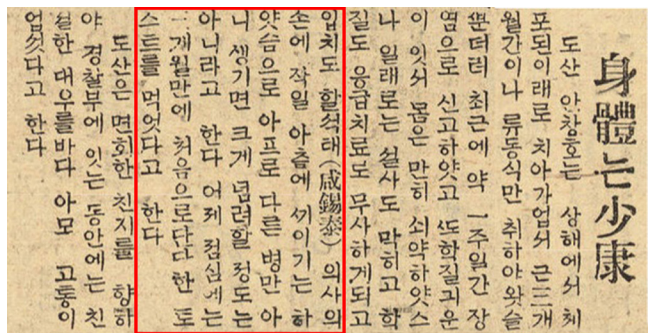 身體는少康
도산 안창호는 상해에서 체
포된이래로 치아가업서 근三개
월간이나 류동식만 취하야왓슬
뿐더러 최근에 약 一주일간 장
염으로 신고하얏고 또학질긔운
이 잇서 몸은 만히 쇠약하얏스
나 일래로는 설사도 막히고 학
질도 응급치료로 무사하게되고
입치도 함석태(咸錫泰) 의사의
손에 작일 아츰에 서이기는 하
얏슴으로 아프로 다른 병만 아
니 생기면 크게 념려할 정도는
아니라고 한다 어제 점심에는
三개월만에 처음으로단단한 토
스트를 먹엇다고 한다
도산은 면회한 친지를 향하
야 경찰부에 잇는 동안에는 친
절한 대우를바다 아모 고통이
업섯다고 한다